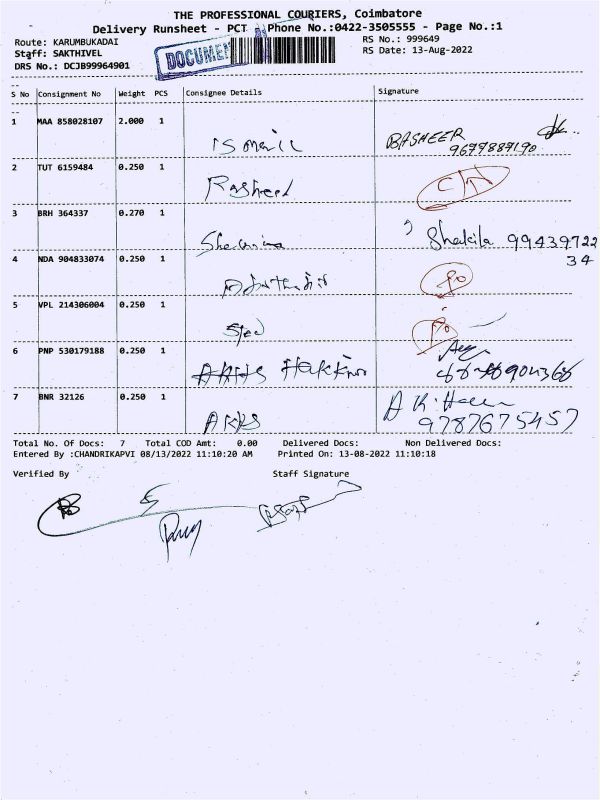 THE PROFESSIONAL COURIERS, Coimbatore
Delivery Runsheet - PCT Phone No.:0422-3505555 - Page No.:1
Route: KARUMBUKADAI RS No.: 999649
Staff: SAKTHIVEL RS Date: 13-Aug-2022
DRS No.: DCJB99964901
S No Consignment No Weight PCS Consignee Details Signature
1 MAA 858028107 2.000 1
BASHEER
2 TUT 6159484 0.250 1
Rasheed
3 BRH 364337 0.270 1
Shakila 99439722
34
4 NDA 904833074 0.250 1
5 VPL 214306004 0.250 1
Syed
6 PNP 530179188 0.250 1
7 BNR 32126 0.250 1
9787675457
Total No. Of Docs: 7 Total COD Amt: 0.00 Delivered Docs: Non Delivered Docs:
Entered By :CHANDRIKAPVI 08/13/2022 11:10:20 AM Printed On: 13-08-2022 11:10:18
Verified By Staff Signature